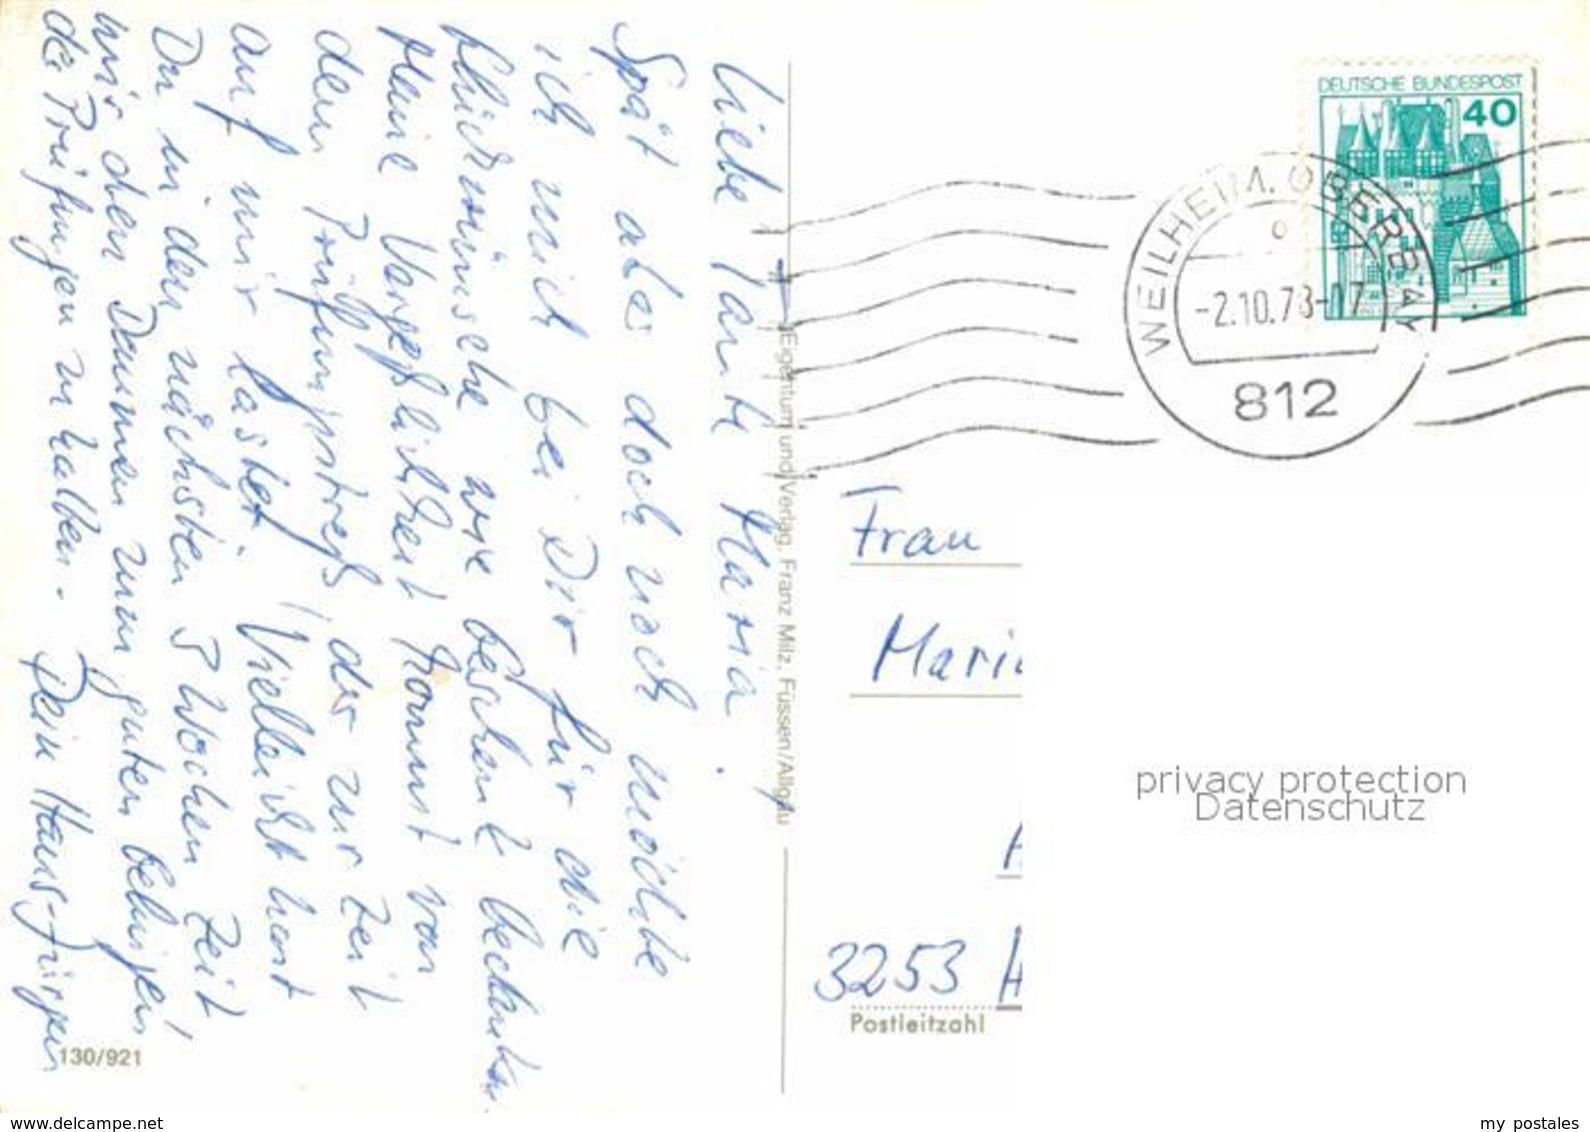 Liebe Tante Maria.
Spät aber doch noch möchte
ich mich bei Dir für die
Glückwünsche wie Geschenk bedanken.
Meine Vergeßlichkeit kommt von
dem Prüfungsstreß, der zur Zeit
auf mir lastet. Vielleicht hast
Du in den nächsten 3 Wochen Zeit,
mir den Daumen zum guten Gelingen
der Prüfungen zu halten. Dein Hans-Jürgen
130/921
Eigentum und Verlag, Franz Milz, Füssen/Allgäu
DEUTSCHE BUNDESPOST
40
WEILHEIM, OBERBAY
-2.10.78-17
812
Frau
Mari
3253 H
Postleitzahl
privacy protection
Datenschutz
www.delcampe.net
my postales